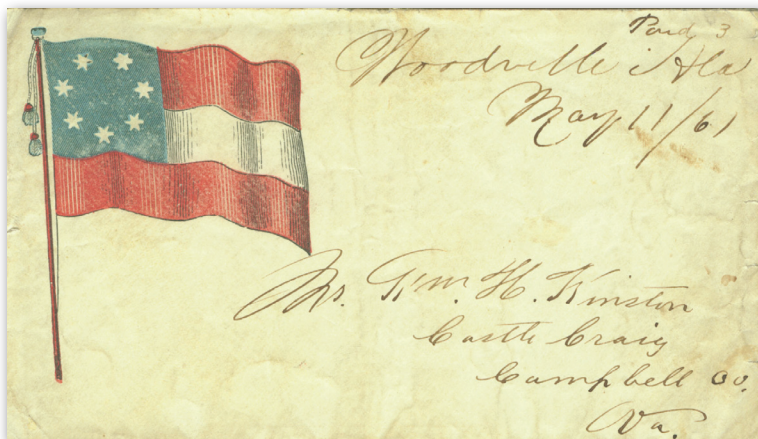 Paid 3
Woodville Ala
May 11/61
Mr. Wm. H. Kinston
Castle Craig
Campbell Co.
Va.